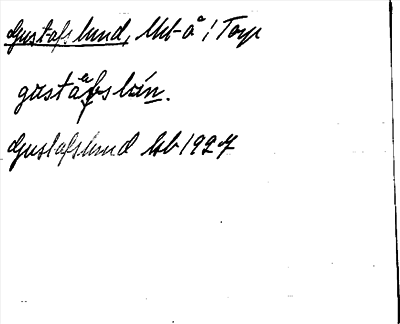 Gustafslund, Utl-å i Torp
gustafslún.
Gustafslund Utb 1927